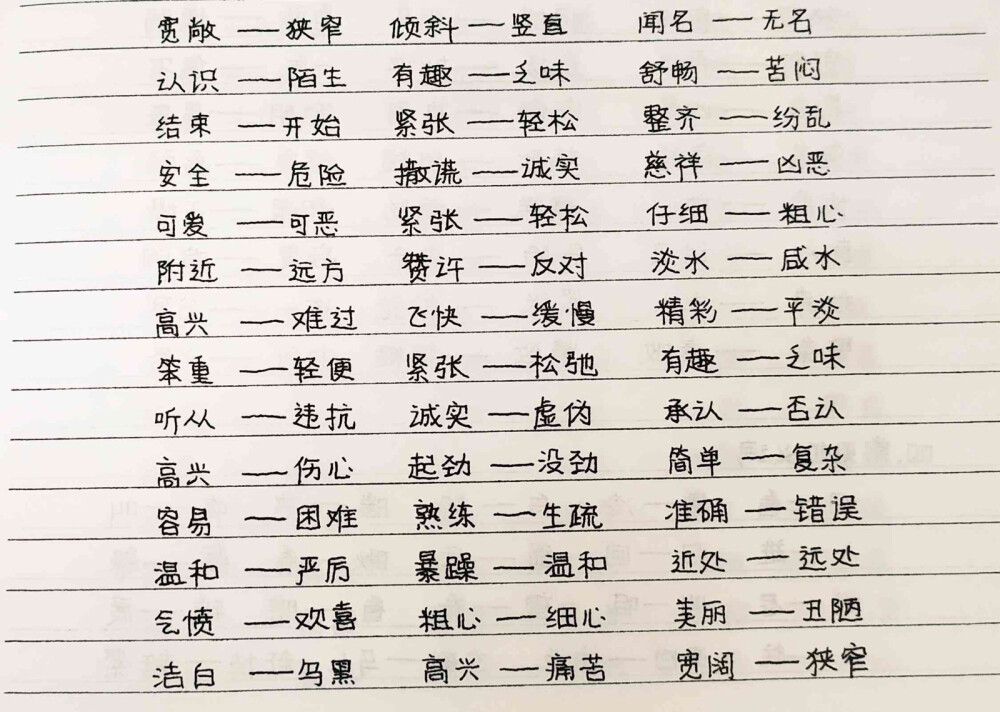 宽敞——狭窄 倾斜——竖直 闻名——无名
认识——陌生 有趣——乏味 舒畅——苦闷
结束——开始 紧张——轻松 整齐——纷乱
安全——危险 撒谎——诚实 慈祥——凶恶
可爱——可恶 紧张——轻松 仔细——粗心
附近——远方 赞许——反对 淡水——咸水
高兴——难过 飞快——缓慢 精彩——平淡
笨重——轻便 紧张——松弛 有趣——乏味
听从——违抗 诚实——虚伪 承认——否认
高兴——伤心 起劲——没劲 简单——复杂
容易——困难 熟练——生疏 准确——错误
温和——严厉 暴躁——温和 近处——远处
气愤——欢喜 粗心——细心 美丽——丑陋
洁白——乌黑 高兴——痛苦 宽阔——狭窄